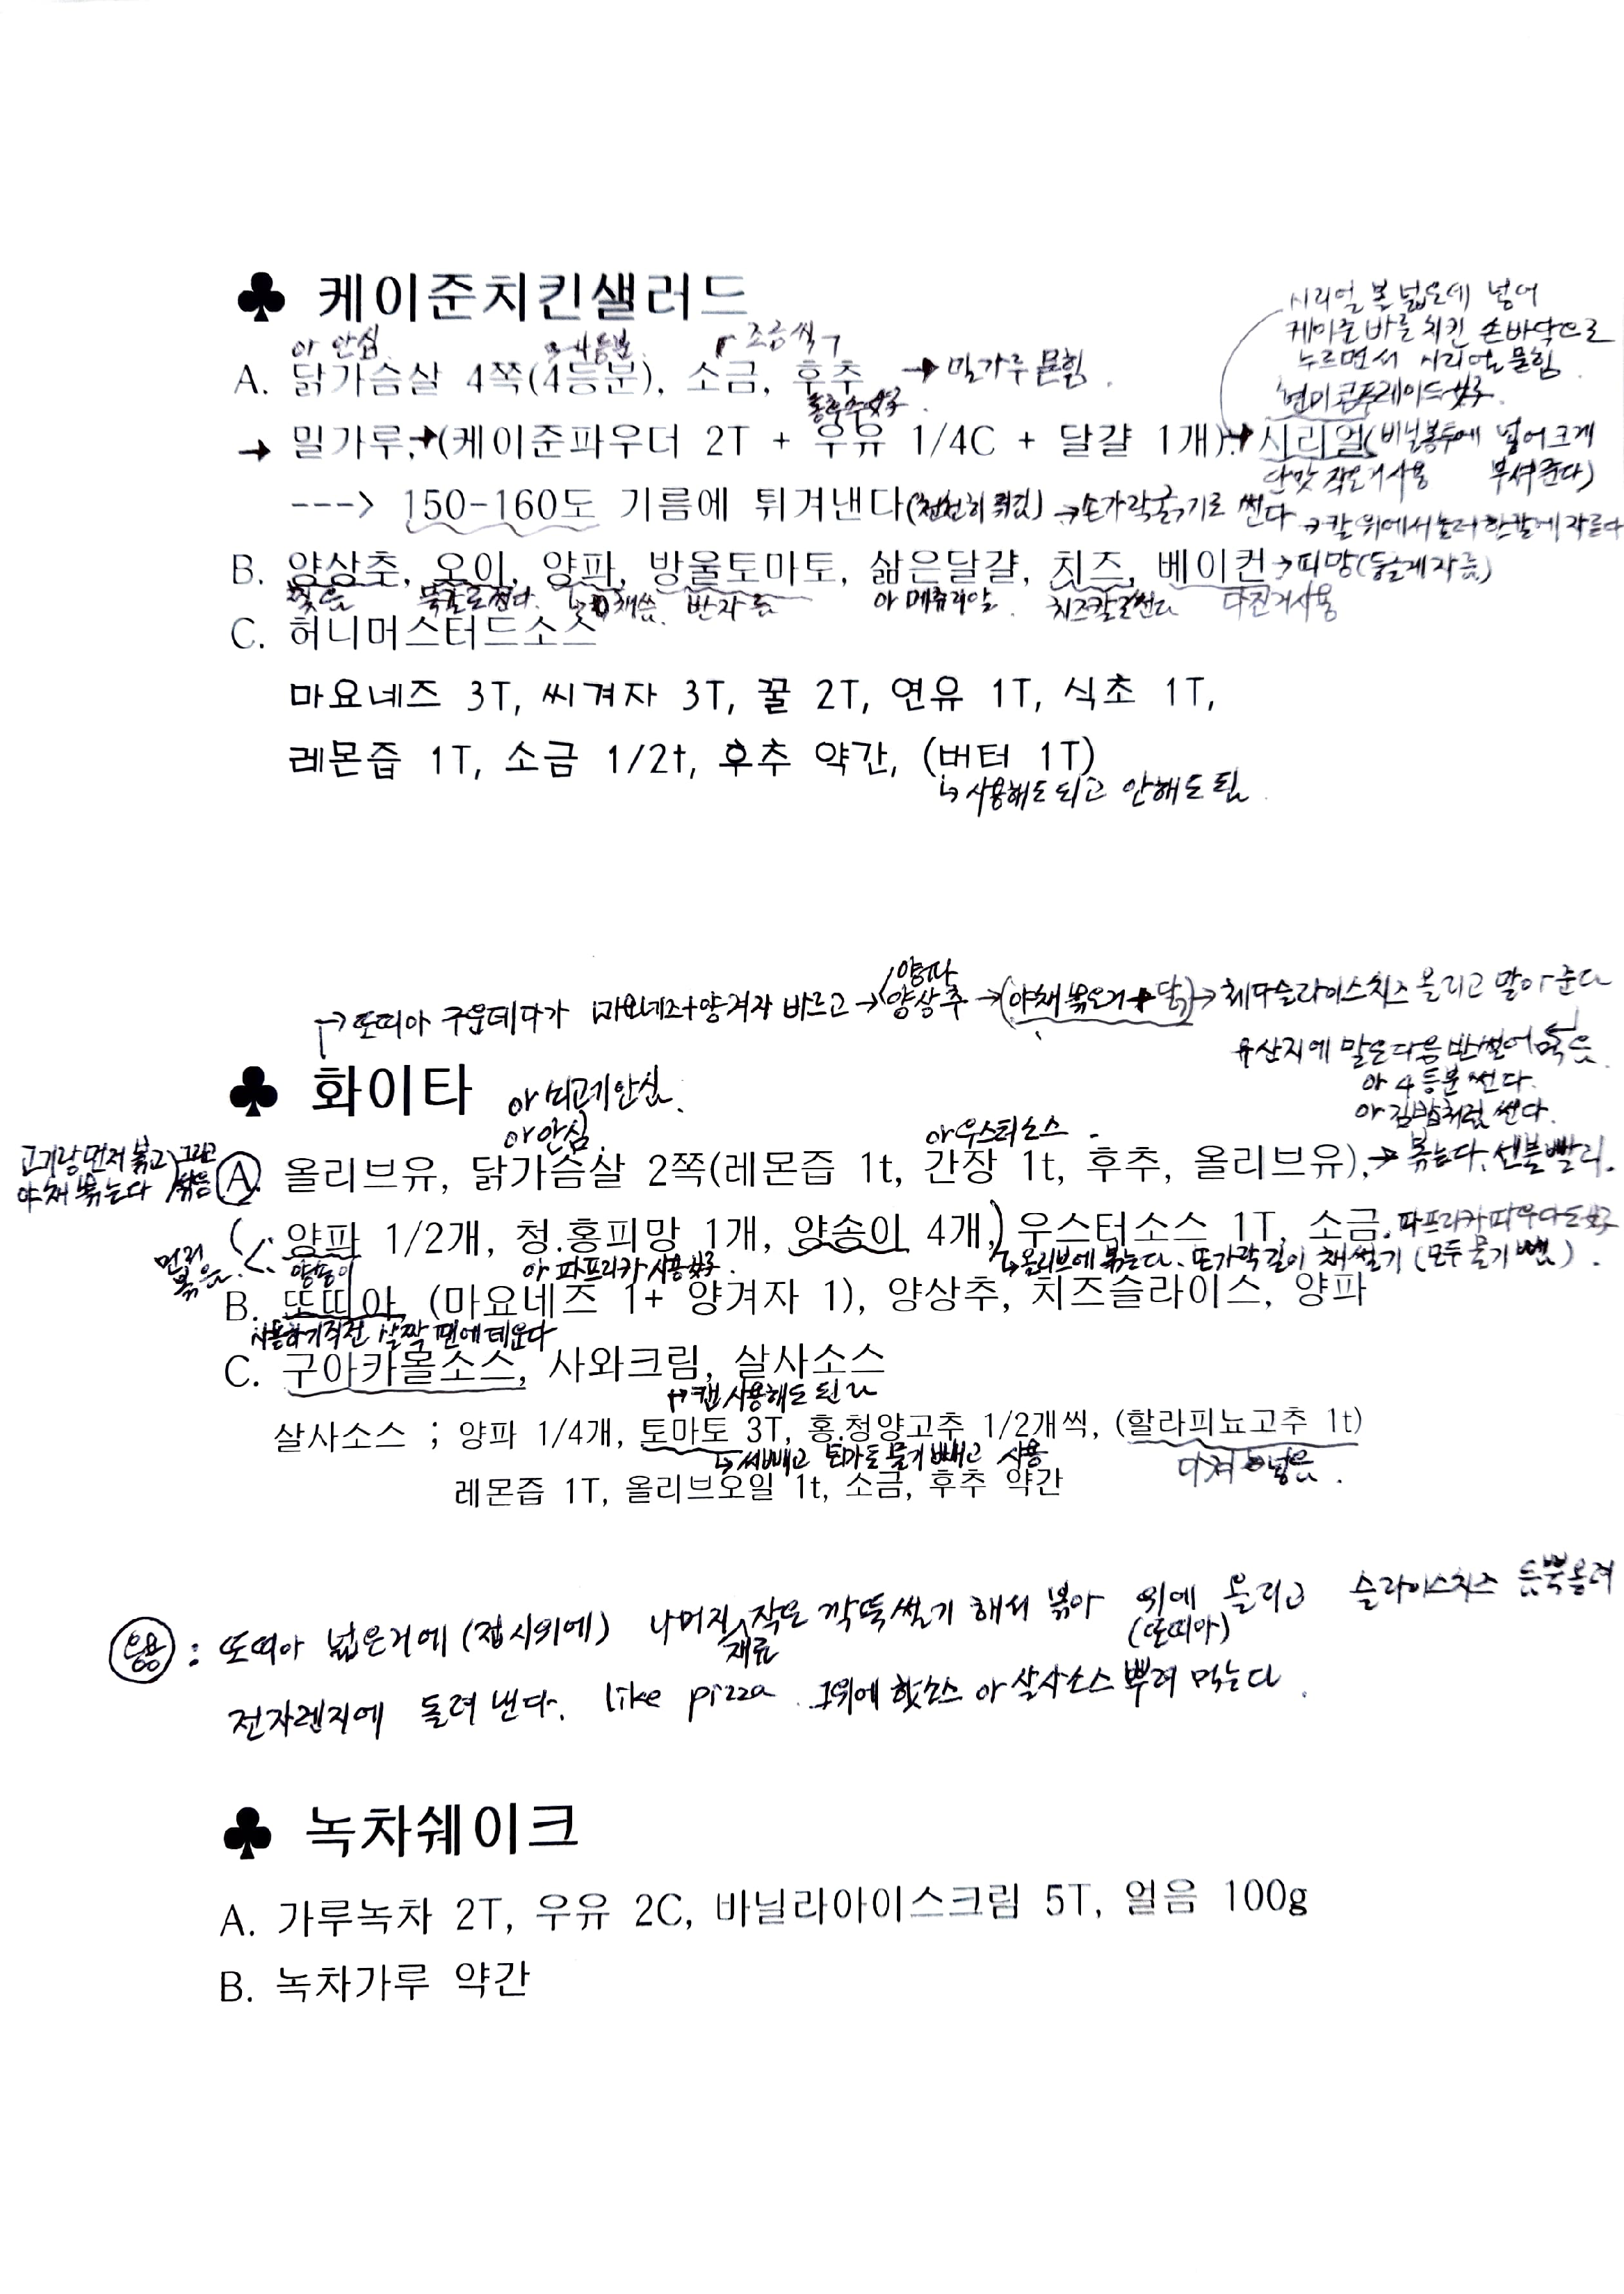 ♣ 케이준치킨샐러드
시리얼 봉 넓은데 넣어
케이준 바른 치킨 손바닥으로
누르면서 시리얼 묻힘.
현미콘후레이크 好.
or 안심 조금씩
A. 닭가슴살 4쪽(4등분), 소금, 후추 → 밀가루 묻힘.
통후추 好.
→ 밀가루,→(케이준파우더 2T + 우유 1/4C + 달걀 1개).→ 시리얼(비닐봉투에 넣어 크게
단맛 적은거 사용 부셔준다)
---> 150-160도 기름에 튀겨낸다(천천히 튀김) → 손가락굵기로 썬다 → 칼 위에서 눌러 한칼에 자른다
B. 양상추, 오이, 양파, 방울토마토, 삶은달걀, 치즈, 베이컨 → 피망(둥글게 자름)
찢음 채썸. 반자름 or 메츄리알. 치즈칼로썬다 다진거사용
C. 허니머스터드소스
마요네즈 3T, 씨겨자 3T, 꿀 2T, 연유 1T, 식초 1T,
레몬즙 1T, 소금 1/2t, 후추 약간, (버터 1T)
↳ 사용해도 되고 안해도 됨.
양파
→ 또띠아 구운데다가 마요네즈+양겨자 바르고 → 양상추 → (야채볶은거 + 닭) → 체다슬라이스치즈 올리고 말아준다
유산지에 말은다음 반썰어 먹음.
♣ 화이타 or 쇠고기안심.
or 4등분 썬다.
or 김밥처럼 썬다.
or 안심. or 우스터소스.
고기랑먼저 볶고 그리고
야채 볶는다 볶음
A. 올리브유, 닭가슴살 2쪽(레몬즙 1t, 간장 1t, 후추, 올리브유),→ 볶는다. 센불 빨리.
(양파 1/2개, 청.홍피망 1개, 양송이 4개,) 우스터소스 1T, 소금. 파프리카파우다도 好
먼저 볶음. 양송이 or 파프리카 사용 好. ↳ 올리브에 볶는다. 손가락길이 채썰기 (모두 물기 뺌).
B. 또띠아, (마요네즈 1+ 양겨자 1), 양상추, 치즈슬라이스, 양파
사용하기직전 살짝 팬에 데운다
C. 구아카몰소스, 사와크림, 살사소스
↦ 캔 사용해도 된다
살사소스 ; 양파 1/4개, 토마토 3T, 홍.청양고추 1/2개씩, (할라피뇨고추 1t)
↳ 씨빼고 토마토 물기 빼고 사용 다져 넣음.
레몬즙 1T, 올리브오일 1t, 소금, 후추 약간
응용 : 또띠아 넓은거에 (접시위에) 나머지 재료 작은 깍뚝썰기 해서 볶아 위에 (또띠아) 올리고 슬라이스치즈 듬뿍올려
전자렌지에 돌려 낸다. like pizza. 그위에 핫소스 or 살사소스 뿌려 먹는다.
♣ 녹차쉐이크
A. 가루녹차 2T, 우유 2C, 바닐라아이스크림 5T, 얼음 100g
B. 녹차가루 약간